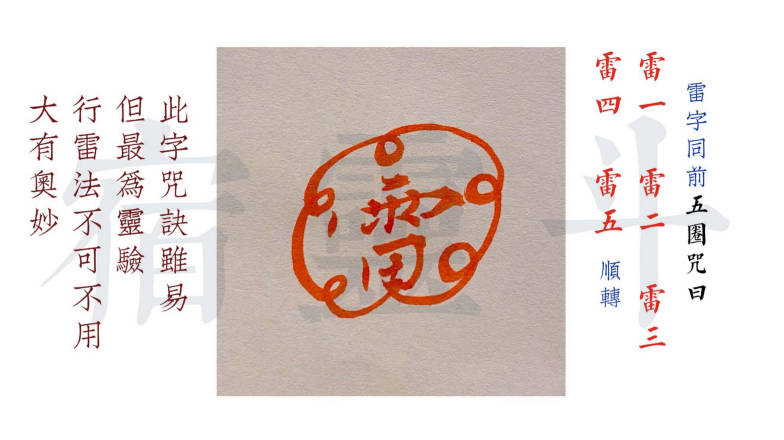 雷字同前五圈咒曰
雷一 雷二 雷三
雷四 雷五 順轉
此字咒訣雖易
但最爲靈驗
行雷法不可不用
大有奧妙
斗
宿